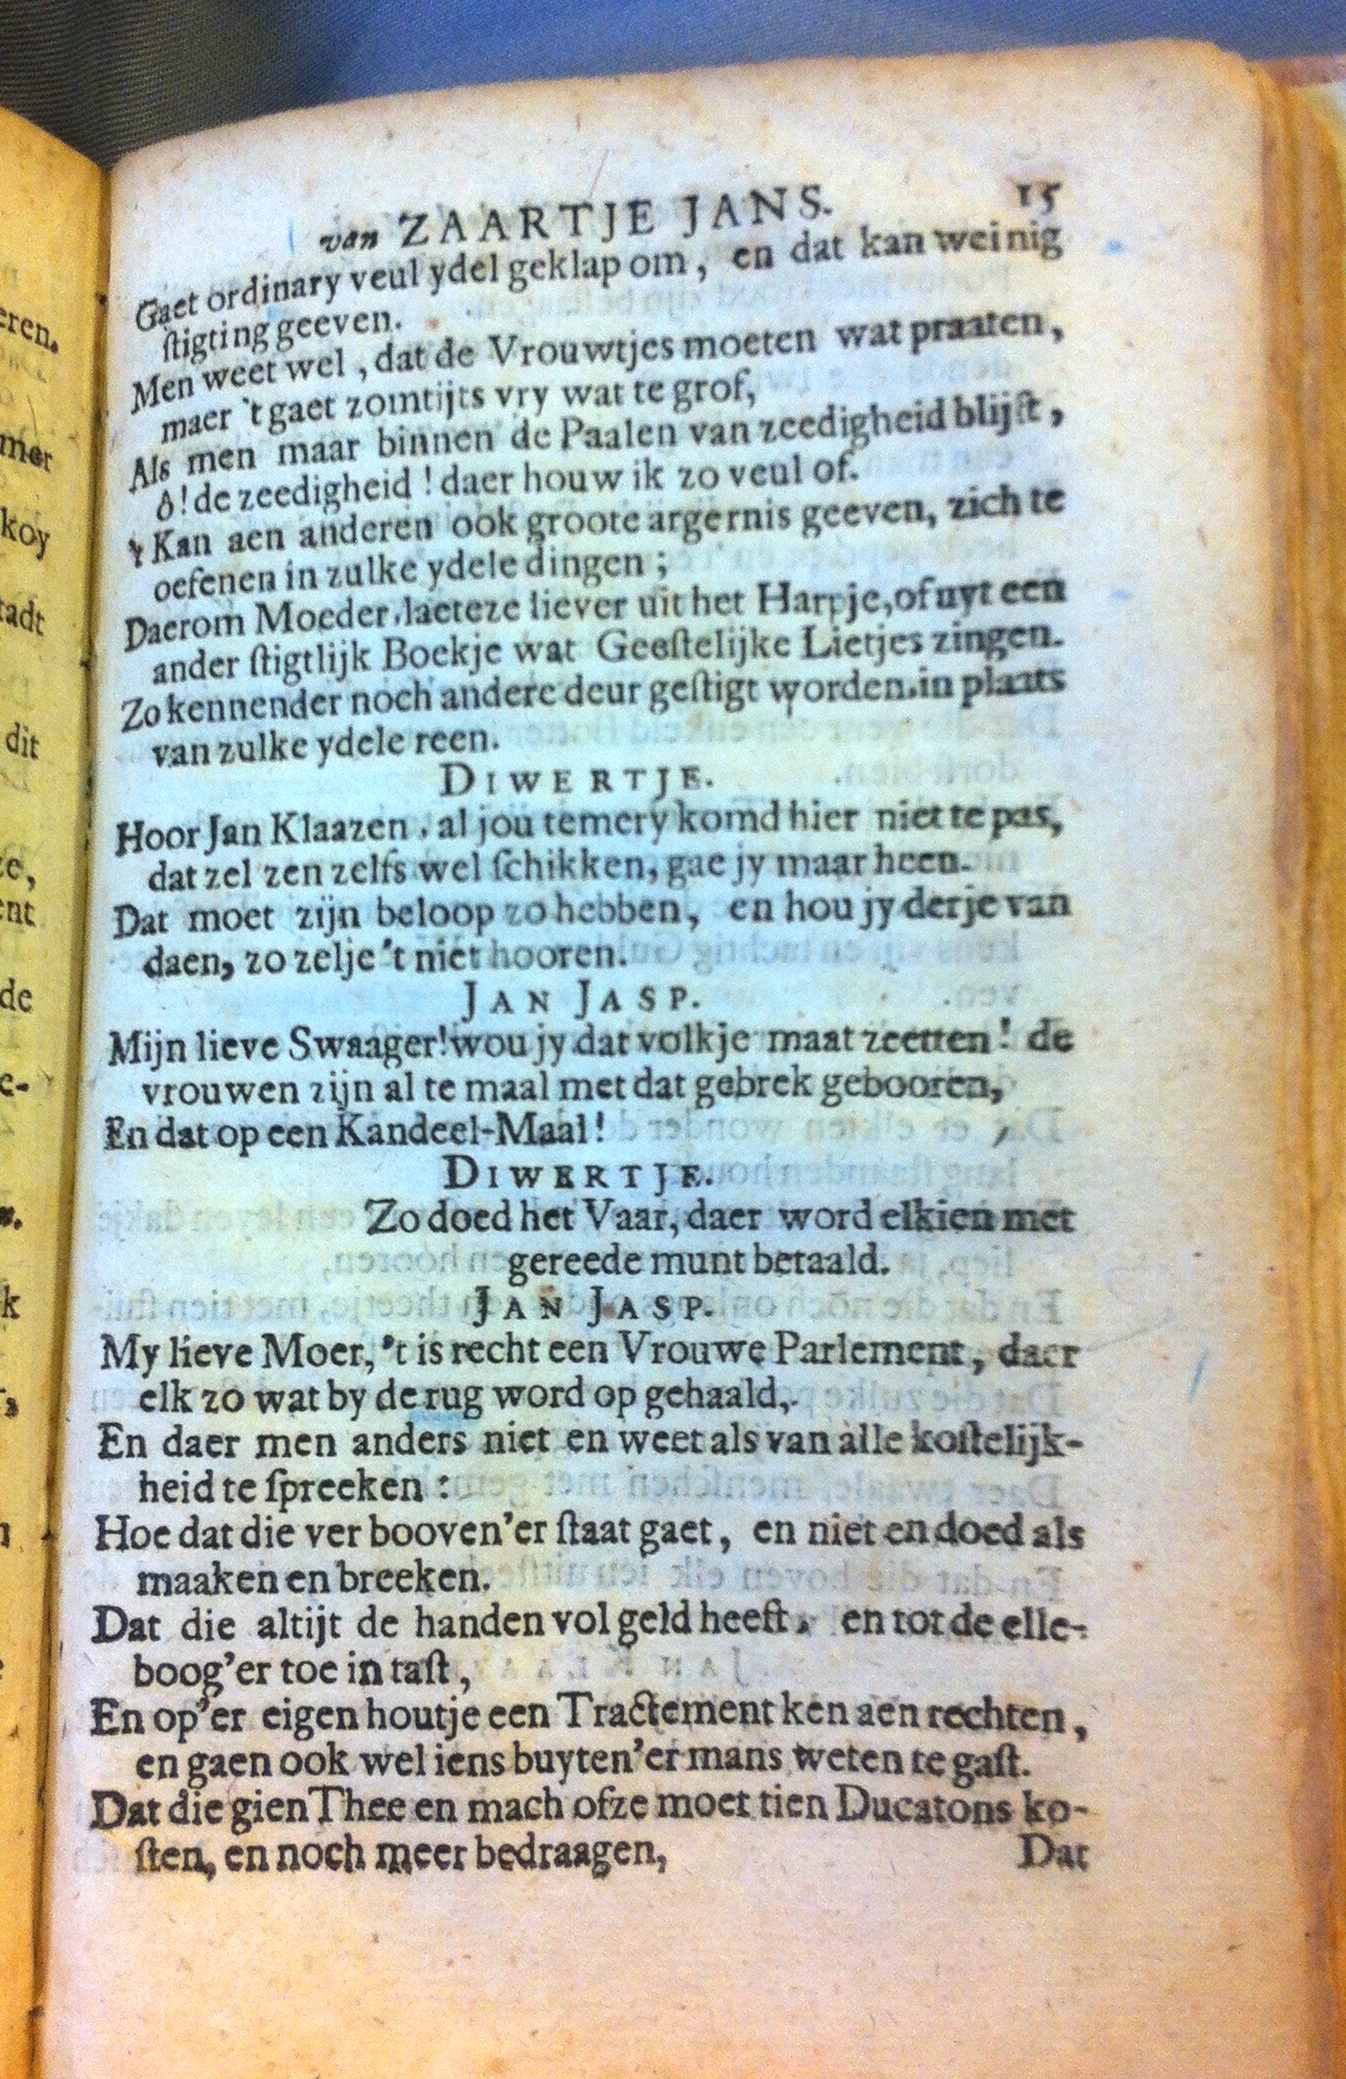 van ZAARTJE JANS. 15
Gaet ordinary veul ydel geklap om, en dat kan weinig
ſtigting geeven.
Men weet wel, dat de Vrouwtjes moeten wat praaten,
maer 't gaet zomtijts vry wat te grof,
Als men maar binnen de Paalen van zeedigheid blijft,
ô! de zeedigheid! daer houw ik zo veul of.
't Kan aen anderen ook groote argernis geeven, zich te
oefenen in zulke ydele dingen;
Daerom Moeder, laeteze liever uit het Harpje, of uyt een
ander ſtigtlijk Boekje wat Geeſtelijke Lietjes zingen.
Zo kennender noch andere deur geſtigt worden, in plaats
van zulke ydele reen.
DIWERTJE.
Hoor Jan Klaazen, al jou temery komd hier niet te pas,
dat zel zen zelfs wel ſchikken, gae jy maar heen.
Dat moet zijn beloop zo hebben, en hou jy derje van
daen, zo zelje 't niet hooren.
JAN JASP.
Mijn lieve Swaager! wou jy dat volkje maat zeetten! de
vrouwen zijn al te maal met dat gebrek gebooren,
En dat op een Kandeel-Maal!
DIWERTJE.
Zo doed het Vaar, daer word elkien met
gereede munt betaald.
JAN JASP.
My lieve Moer, 't is recht een Vrouwe Parlement, daer
elk zo wat by de rug word op gehaald,
En daer men anders niet en weet als van alle koſtelijk-
heid te ſpreeken:
Hoe dat die ver booven'er ſtaat gaet, en niet en doed als
maaken en breeken.
Dat die altijt de handen vol geld heeft, en tot de elle-
boog'er toe in taſt,
En op'er eigen houtje een Tractement ken aen rechten,
en gaen ook wel iens buyten'er mans weten te gaſt.
Dat die gien Thee en mach ofze moet tien Ducatons ko-
ſten, en noch meer bedraagen,
Dat